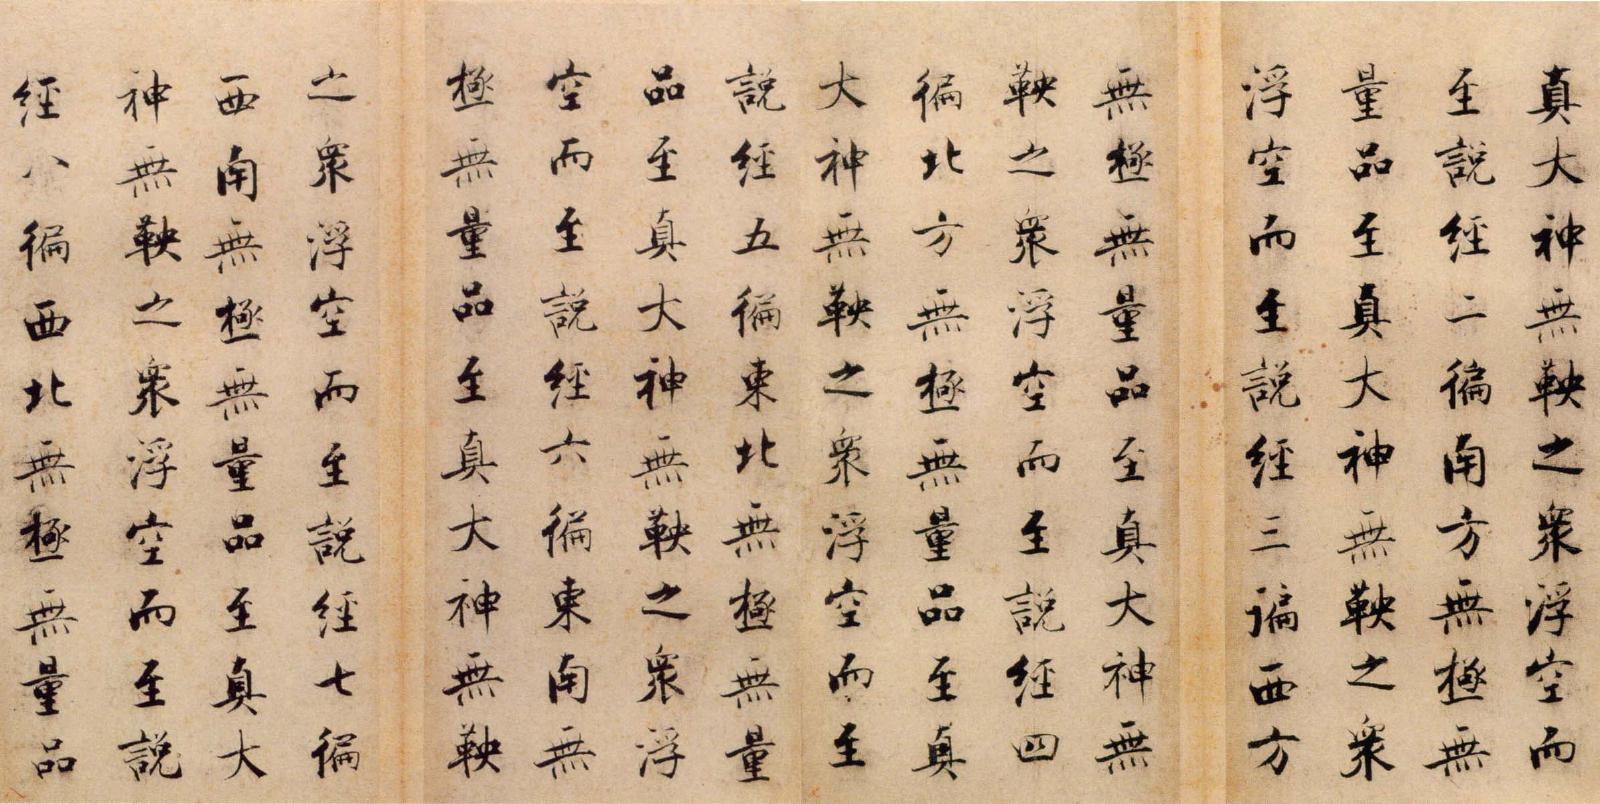 真大神無鞅之衆浮空而
至說經二徧南方無極無
量品至真大神無鞅之衆
浮空而至說經三諞西方
無極無量品至真大神無
鞅之衆浮空而至說經四
徧北方無極無量品至真
大神無鞅之衆浮空而至
說經五徧東北無極無量
品至真大神無鞅之衆浮
空而至說經六徧東南無
極無量品至真大神無鞅
之衆浮空而至說經七徧
西南無極無量品至真大
神無鞅之衆浮空而至說
經八徧西北無極無量品